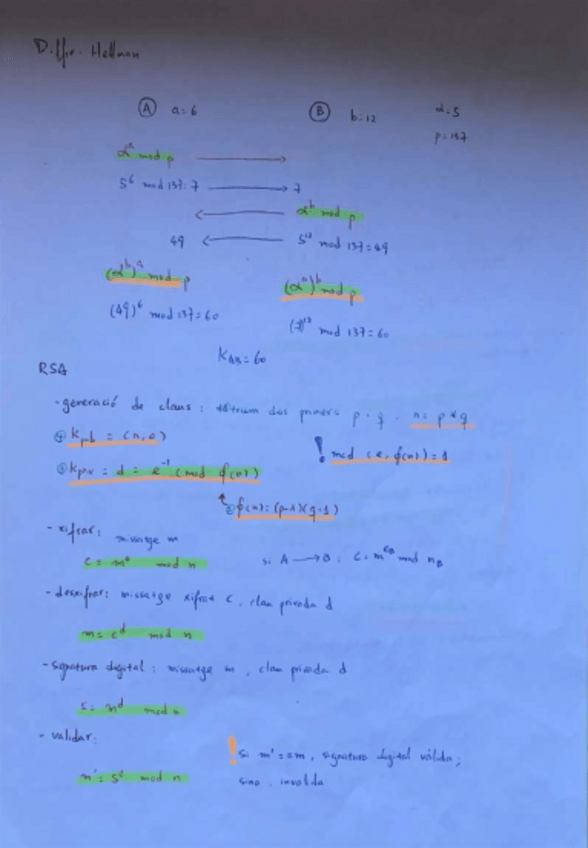 Diffie-Hellman
A a=6 B b=12 α=5
p=137
α^a mod p
5^6 mod 137=7 7
α^b mod p
49 5^12 mod 137=49
(α^b)^a mod p (α^a)^b mod p
(49)^6 mod 137=60 (7)^12 mod 137=60
K_AB=60
RSA
- generació de claus: dos primers p, q. n=p*q
③ Kpub = (n,e) ! mcd (e, φ(n))=1
④ Kpriv = d = e^-1 (mod φ(n))
② φ(n)=(p-1)(q-1)
- xifrar: missatge m
c = m^e mod n si A → B: c=m^eB mod nB
- desxifrar: missatge xifrat c, clau privada d
m = c^d mod n
- signatura digital: missatge m, clau privada d
s = m^d mod n
- validar:
! si m'==m, signatura digital vàlida;
m' = s^e mod n sino, invalida